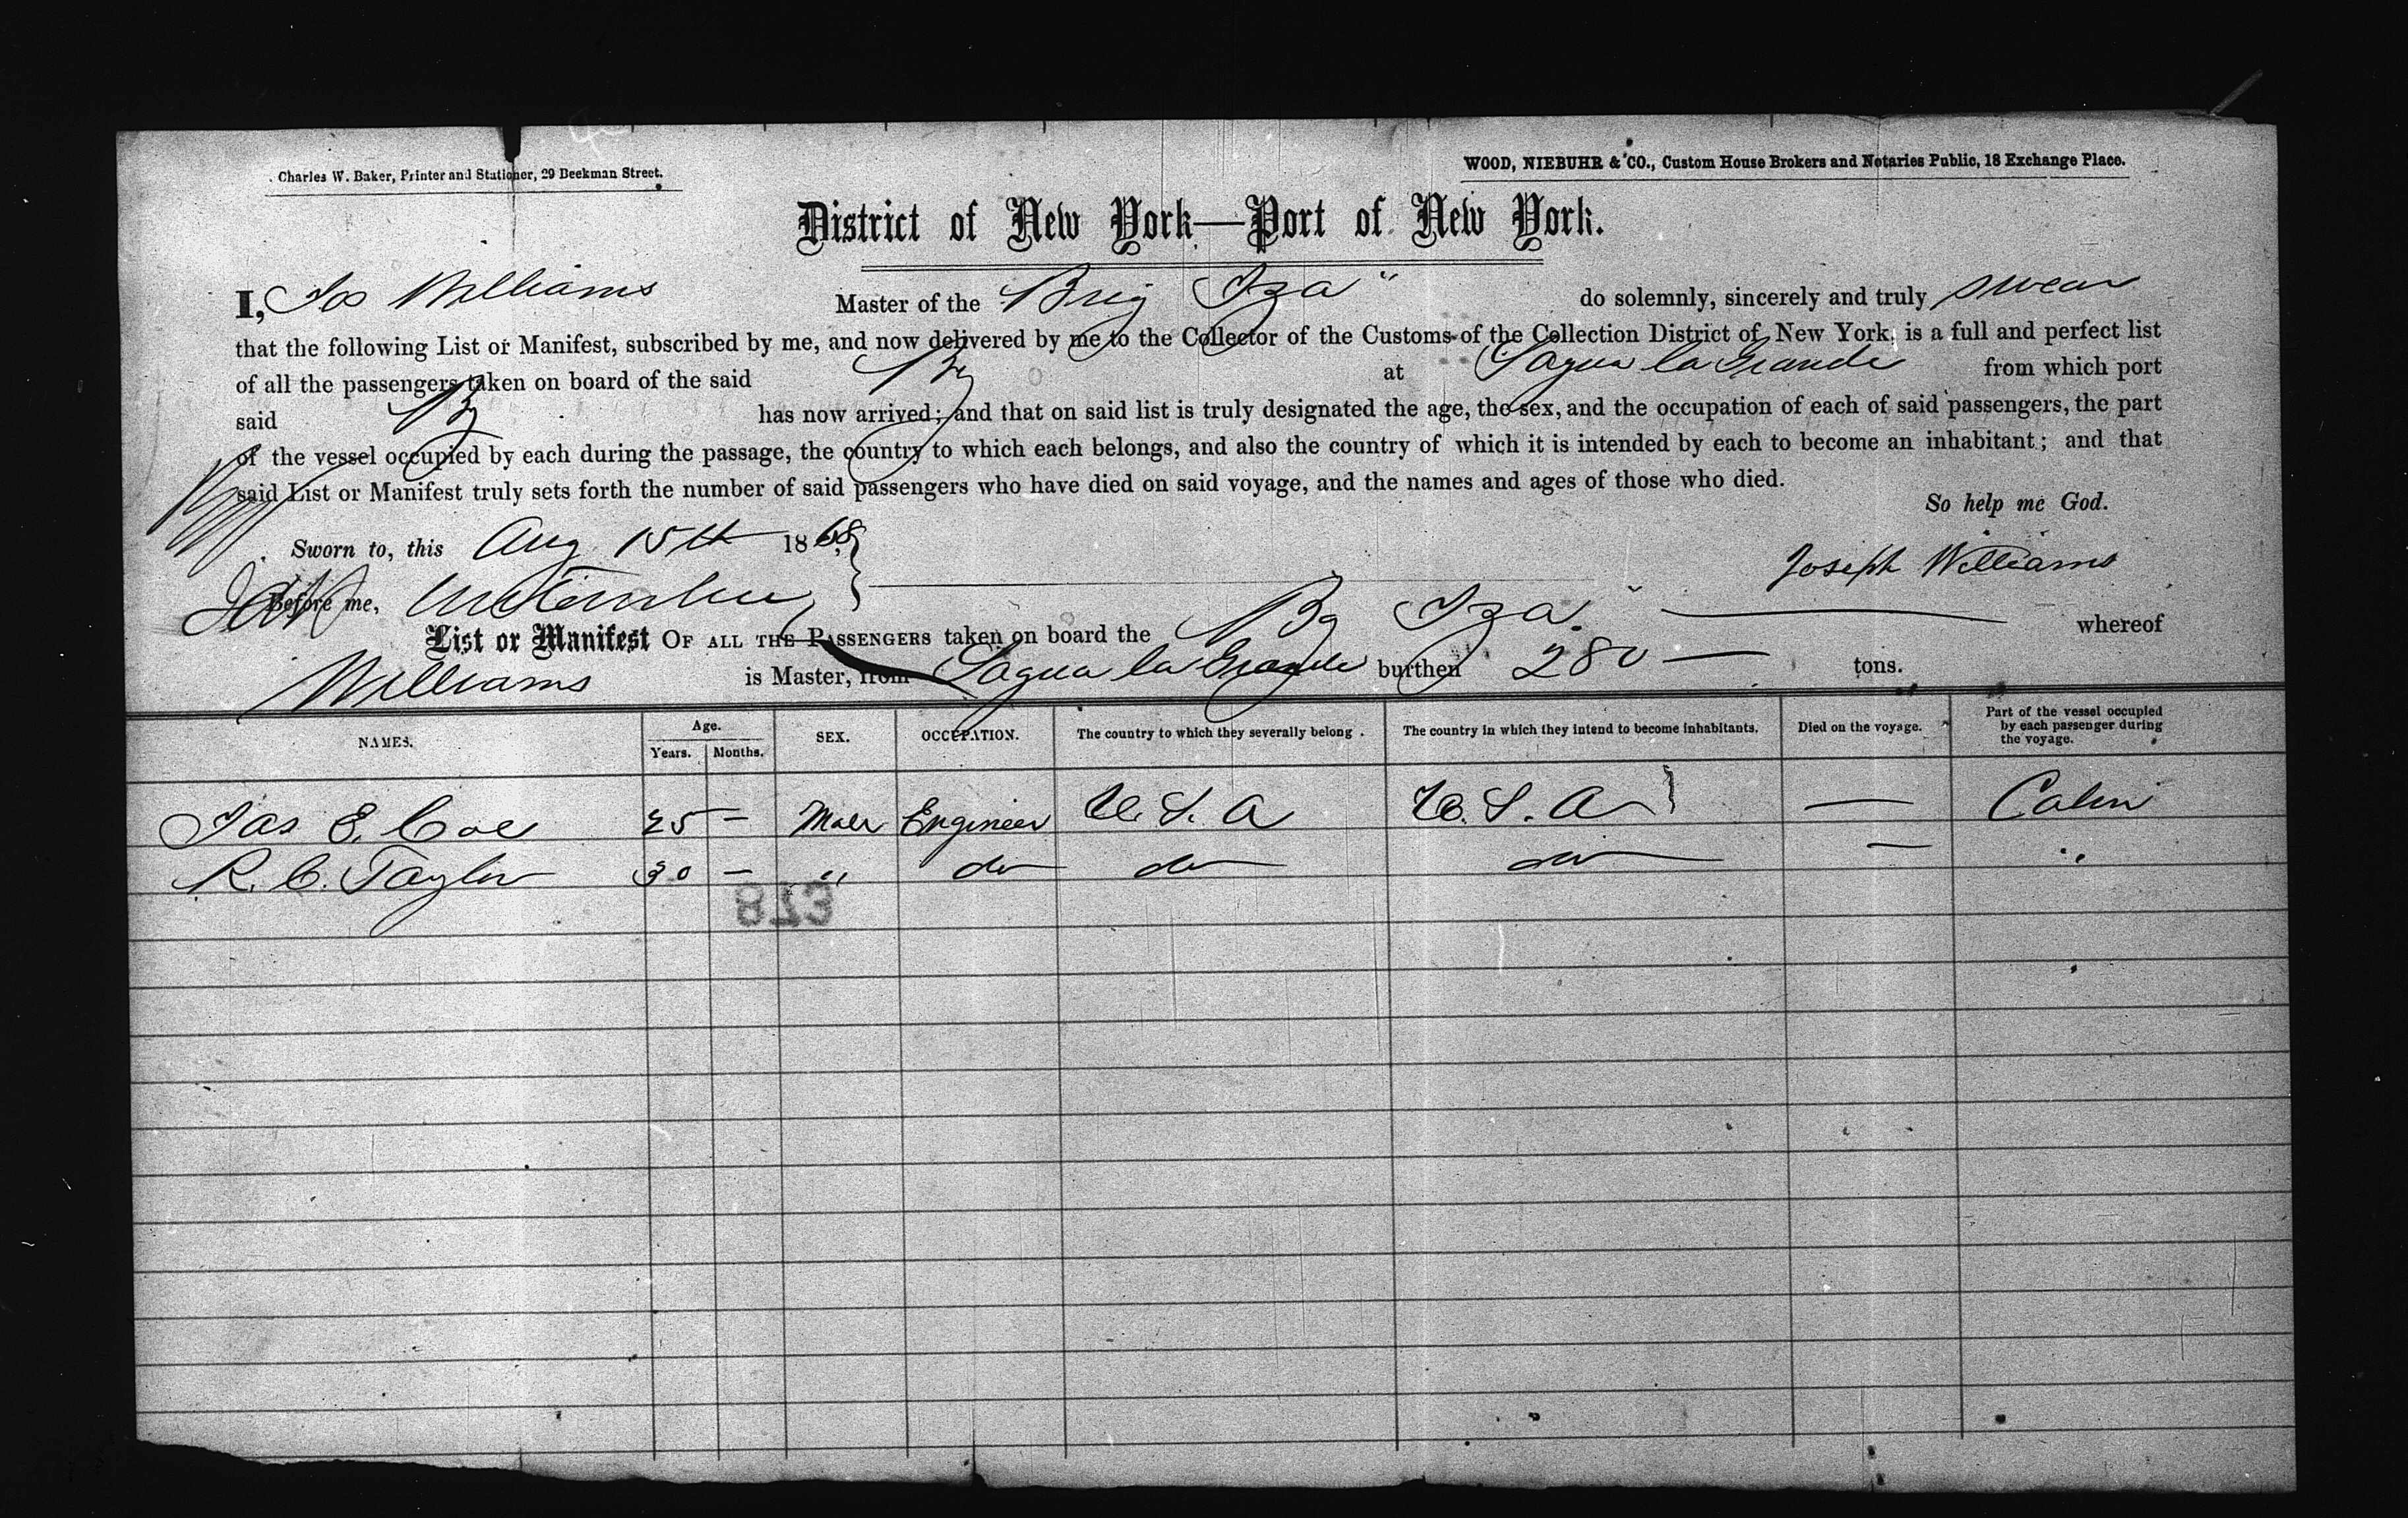 Charles W. Baker, Printer and Stationer, 29 Beekman Street.
WOOD, NIEBUHR & CO., Custom House Brokers and Notaries Public, 18 Exchange Place.
District of New York—Port of New York.
I, Jos Williams Master of the Brig "Iza" do solemnly, sincerely and truly swear
that the following List or Manifest, subscribed by me, and now delivered by me to the Collector of the Customs of the Collection District of New York, is a full and perfect list
of all the passengers taken on board of the said Bg at Sagua la Grande from which port
said Bg has now arrived; and that on said list is truly designated the age, the sex, and the occupation of each of said passengers, the part
of the vessel occupied by each during the passage, the country to which each belongs, and also the country of which it is intended by each to become an inhabitant; and that
said List or Manifest truly sets forth the number of said passengers who have died on said voyage, and the names and ages of those who died.
So help me God.
Sworn to, this Aug 15th 1868
Joseph Williams
Before me,
List or Manifest OF ALL THE PASSENGERS taken on board the Bg "Iza" whereof
Williams is Master, from Sagua la Grande burthen 280 tons.
NAMES. Age. Years. Months. SEX. OCCUPATION. The country to which they severally belong. The country in which they intend to become inhabitants. Died on the voyage. Part of the vessel occupied by each passenger during the voyage.
Jas E. Coe 25 — Male Engineer U. S. A U. S. A — Cabin
R. C. Taylor 30 — " do do do — "
873